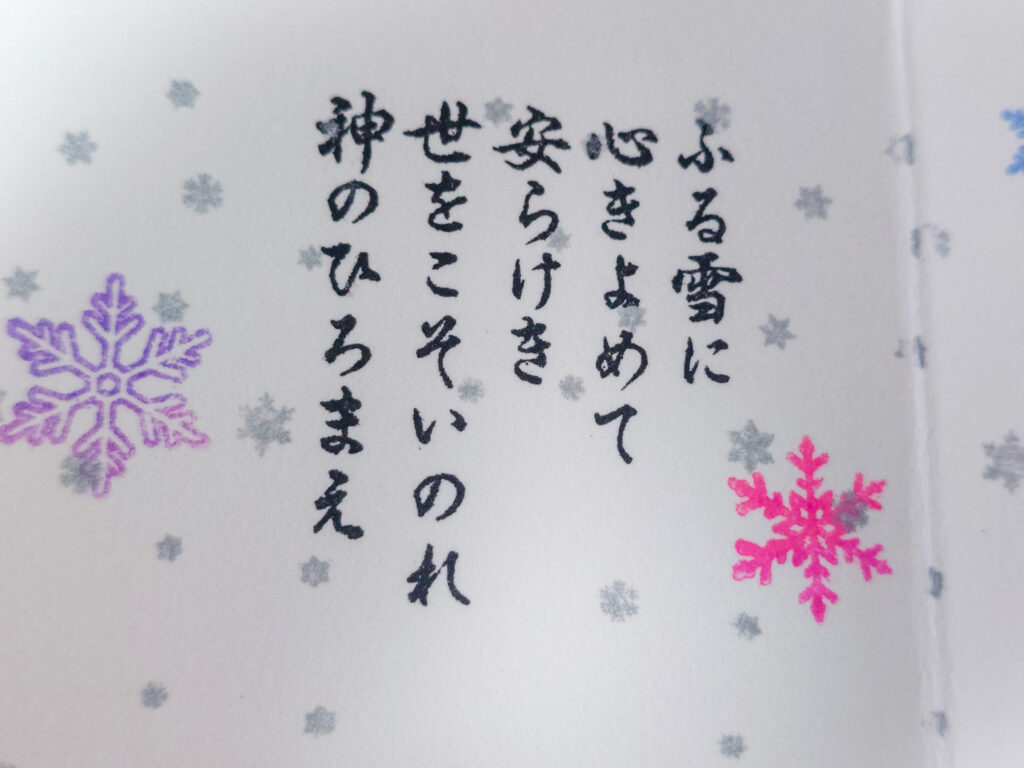 ふる雪に
心きよめて
安らけき
世をこそいのれ
神のひろまえ